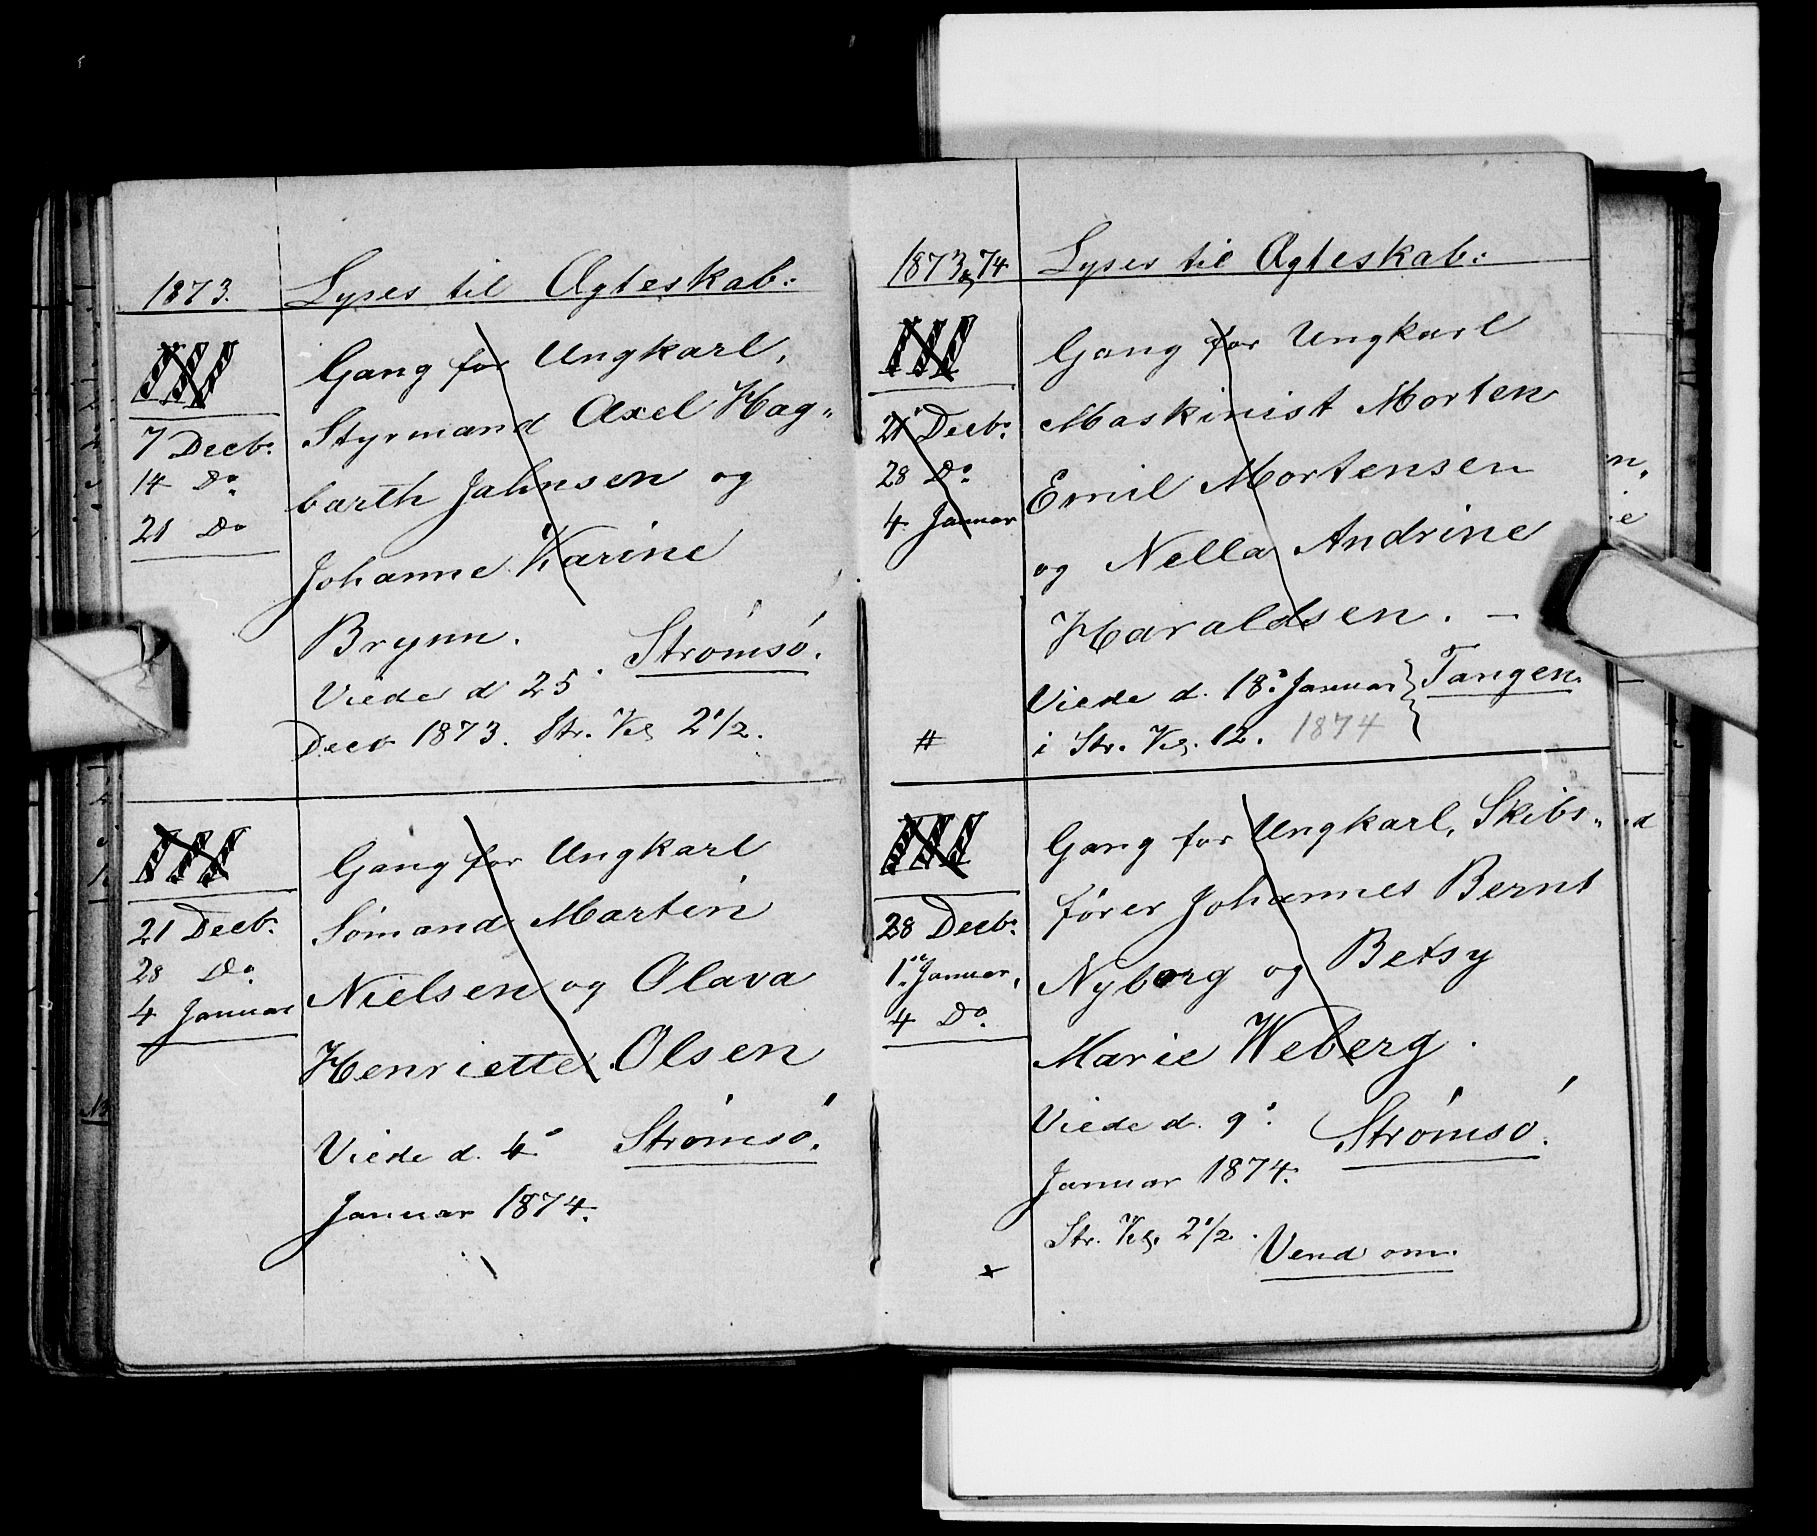 1873. Lyses til Ægteskab:
III Gang for Ungkarl,
7 Decb. Styrmand Axel Hag-
14 Do. barth Jahnsen og
21 Do Johanne Karine
Brynn. Strømsø.
Viede d 25'
Decb 1873. Str. Kl 2 1/2.
III Gang for Ungkarl
21 Decb. Sømand Martin
28 Do. Nielsen og Olava
4 Januar Henriette Olsen
Viede d. 4' Strømsø.
Januar 1874.
1873 & 74 Lyses til Ægteskab:
III Gang for Ungkarl
21 Decb. Maskinist Morten
28 Do. Emil Mortensen
4. Januar og Nella Andrine
Haraldsen. —
Viede d. 18' Januar } Tangen.
# i Str. Kl. 12. 1874
III Gang for Ungkarl, Skibs-
28 Decb. fører Johannes Bernt
1. Januar, Nyborg og Betsy
4 Do. Marie Weberg.
Viede d. 9'. Strømsø.
Januar 1874.
Str. Kl. 2 1/2.
x Vend om.